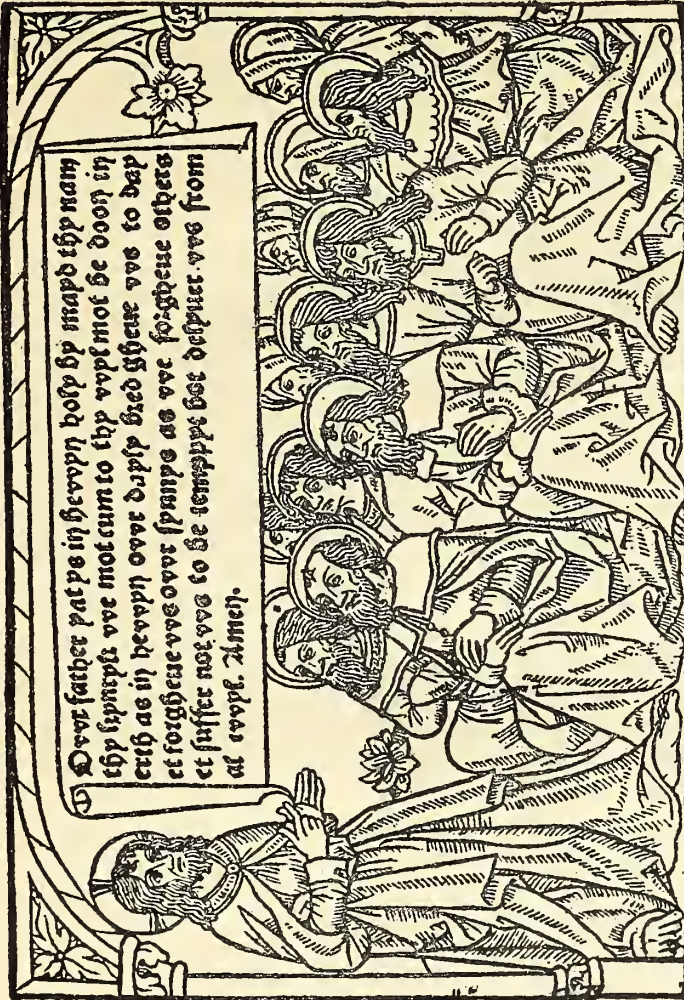 Ovvr father þat ys in hevvyn holy by mayd thy nam
thy vve mot cum to thy vvyl mot be doon in
erth as in hevvyn ovvr dayly bred gheue vvs to day
et forgheue vvs ovvr synnys as vve forgheue others
et suffer not vvs to be bot delyuer vvs from
al evvyl. Amen.